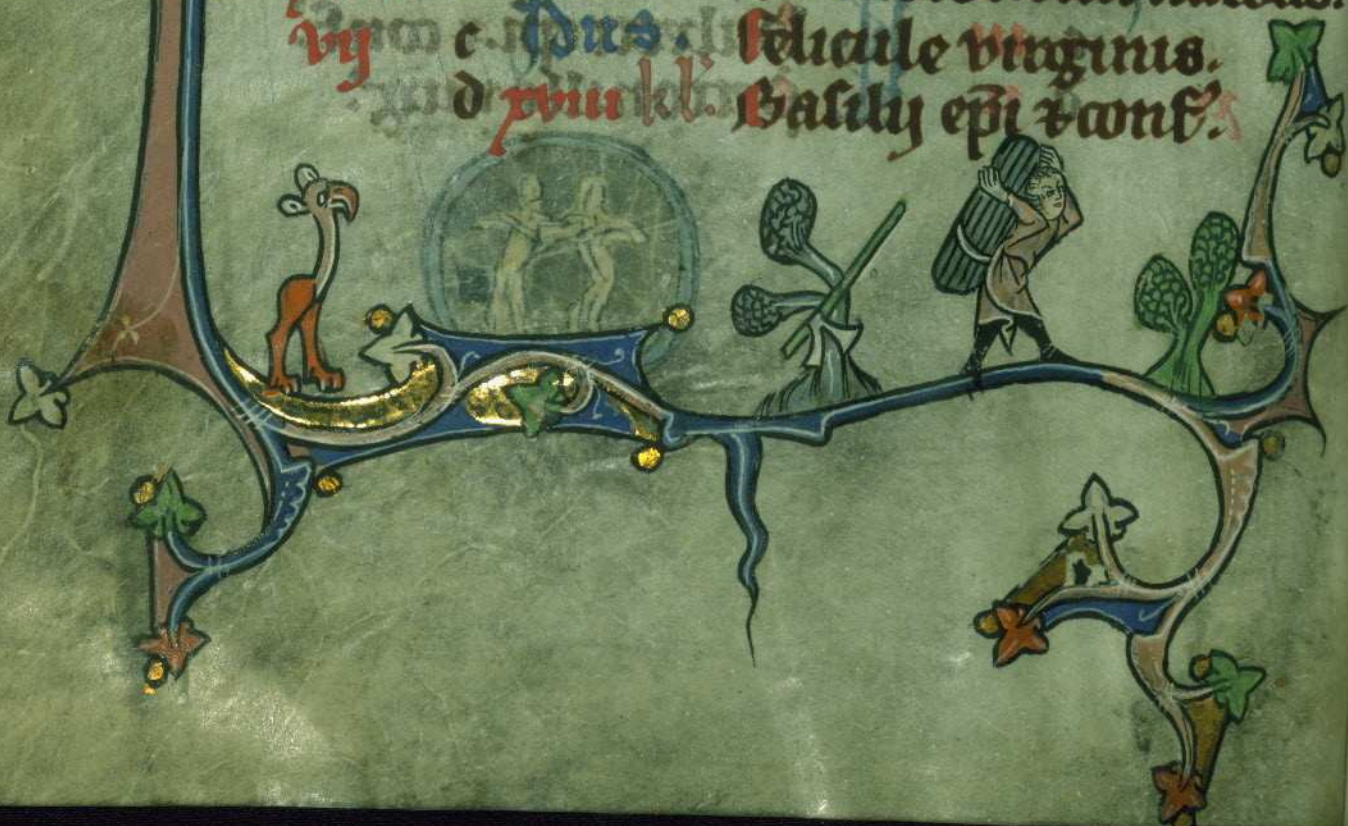 vij c Idus. Felicule virginis.
d xviii kl'. Basilij ep̄i ⁊ conf'.